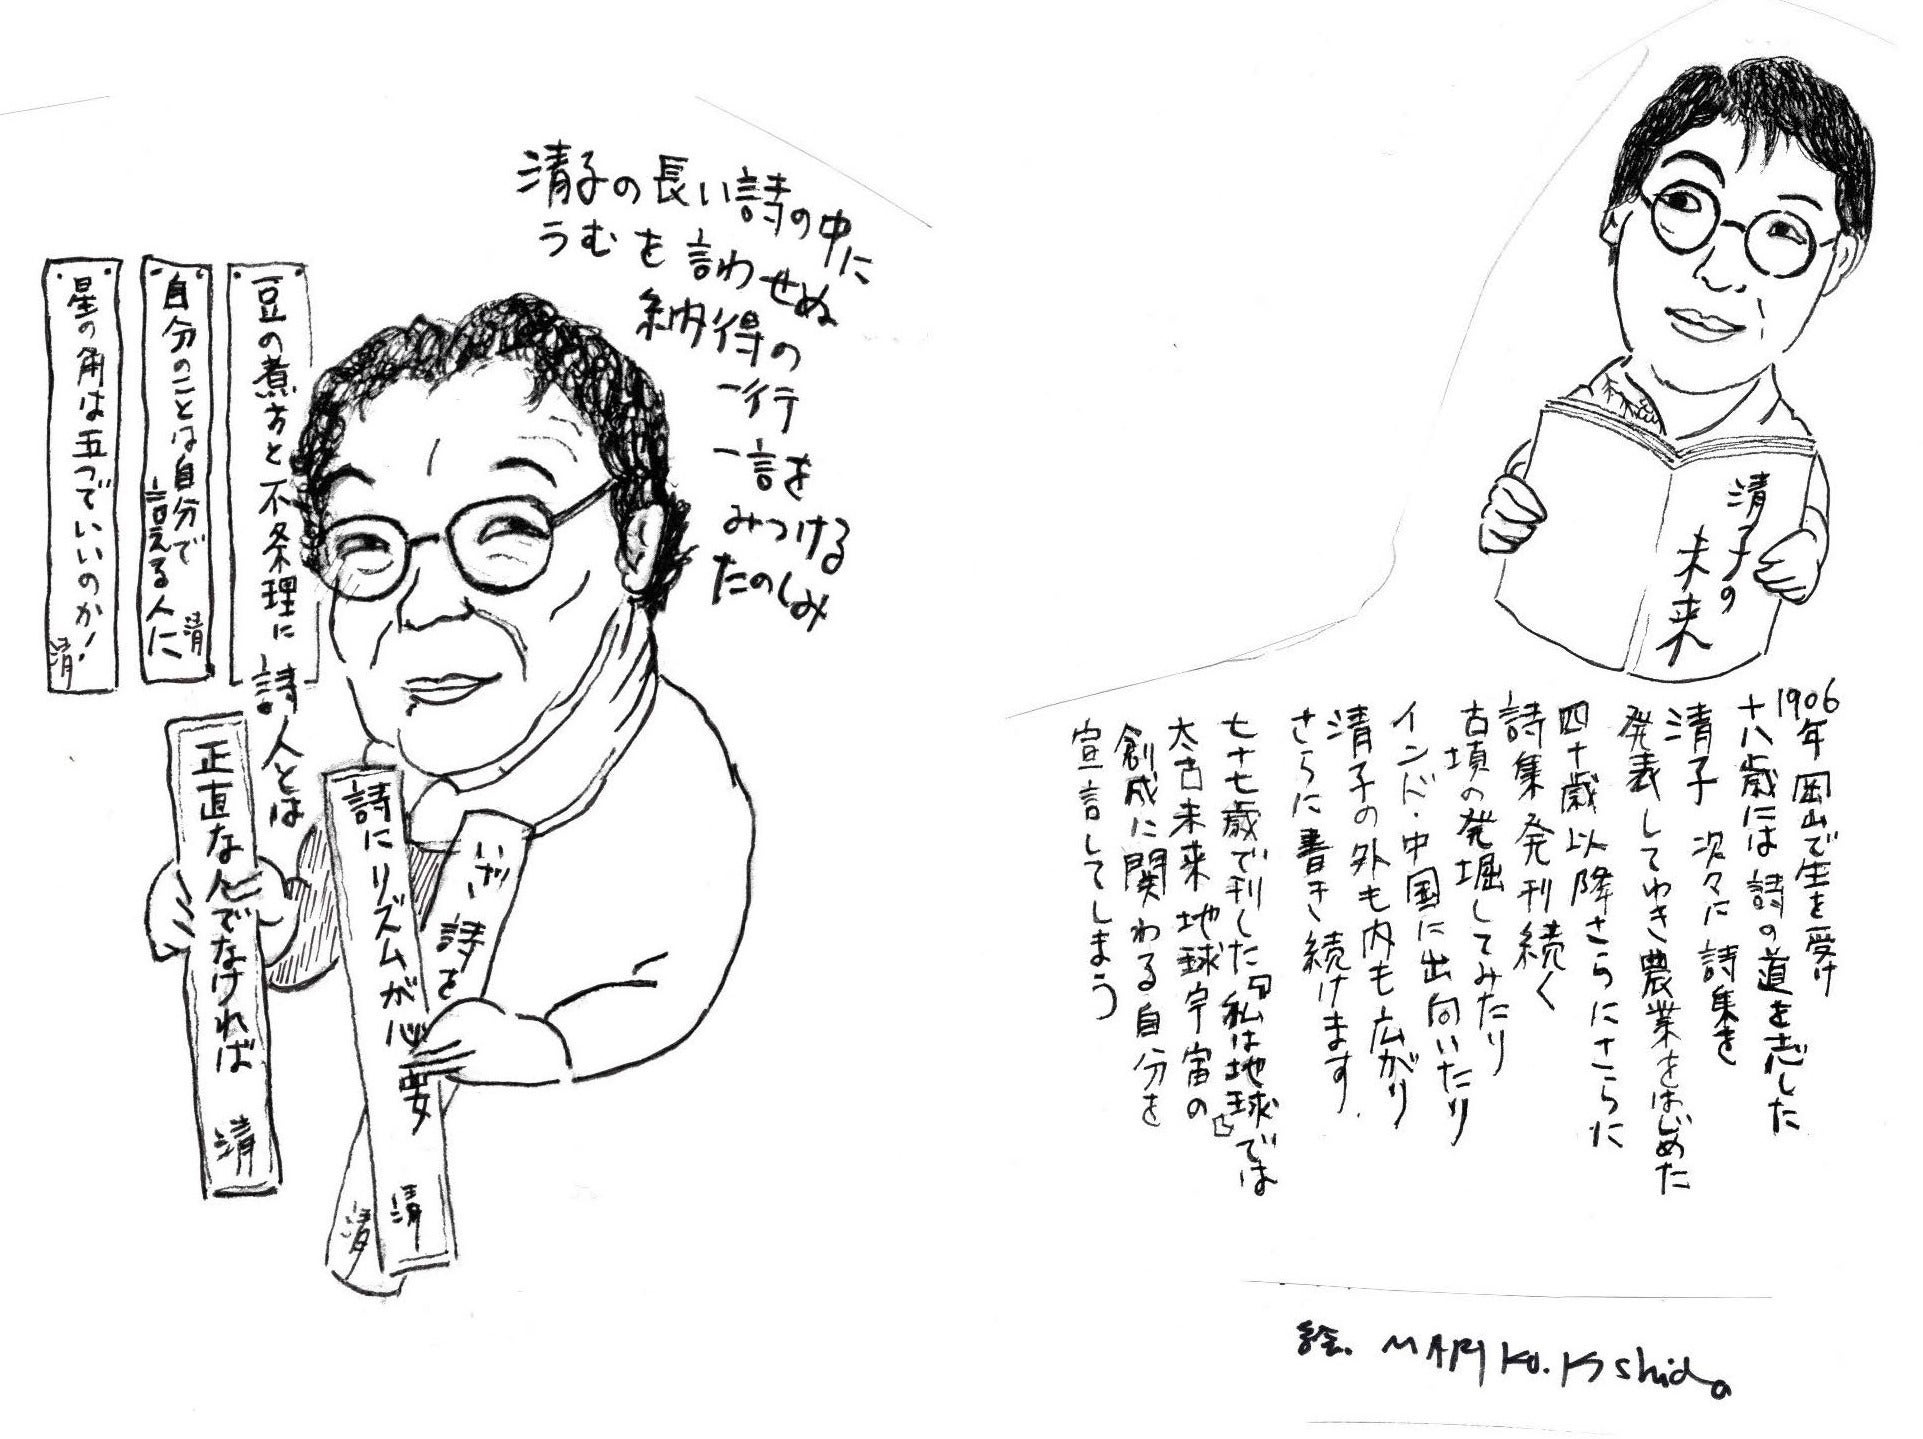 清子の
未来
1906年 岡山で生を受け
十八歳には詩の道を志した
清子 次々に詩集を
発表してゆき農業をはじめた
四十歳以降さらにさらに
詩集発刊続く
古墳の発掘してみたり
インド・中国に出向いたり
清子の外も内も広がり
さらに書き続けます.
七十七歳で刊した『私は地球』では
太古未来地球宇宙の
創成に関わる自分を
宣言してしまう
清子の長い詩の中に
うむを言わせぬ
納得の
一行
一言を
みつける
たのしみ
豆の煮方と不条理に詩人とは
自分のことは自分で
言える人に 清
星の角は五つでいいのか! 清
正直な人でなければ 清
詩にリズムが必要 清
いざ、詩を 清
絵. MARIKO.Kishida